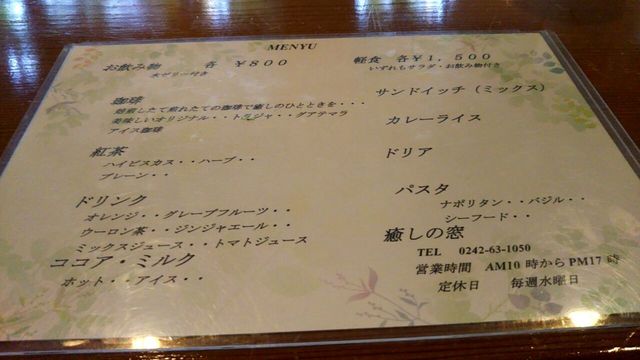 MENYU
お飲み物　各　￥８００
水ゼリー付き
珈琲
焙煎したて煎れたての珈琲で癒しのひとときを・・・
美味しいオリジナル・・トラジャ・・グアテマラ
アイス珈琲
紅茶
ハイビスカス・・ハーブ・・
プレーン・・
ドリンク
オレンジ・・グレープフルーツ・・
ウーロン茶・・ジンジャエール・・
ミックスジュース・・トマトジュース
ココア・ミルク
ホット・・アイス・・
軽食　各￥１，５００
いずれもサラダ・お飲み物付き
サンドイッチ（ミックス）
カレーライス
ドリア
パスタ
ナポリタン・・バジル・・
シーフード・・
癒しの窓
TEL　0242-63-1050
営業時間　AM10 時から PM17 時
定休日　毎週水曜日